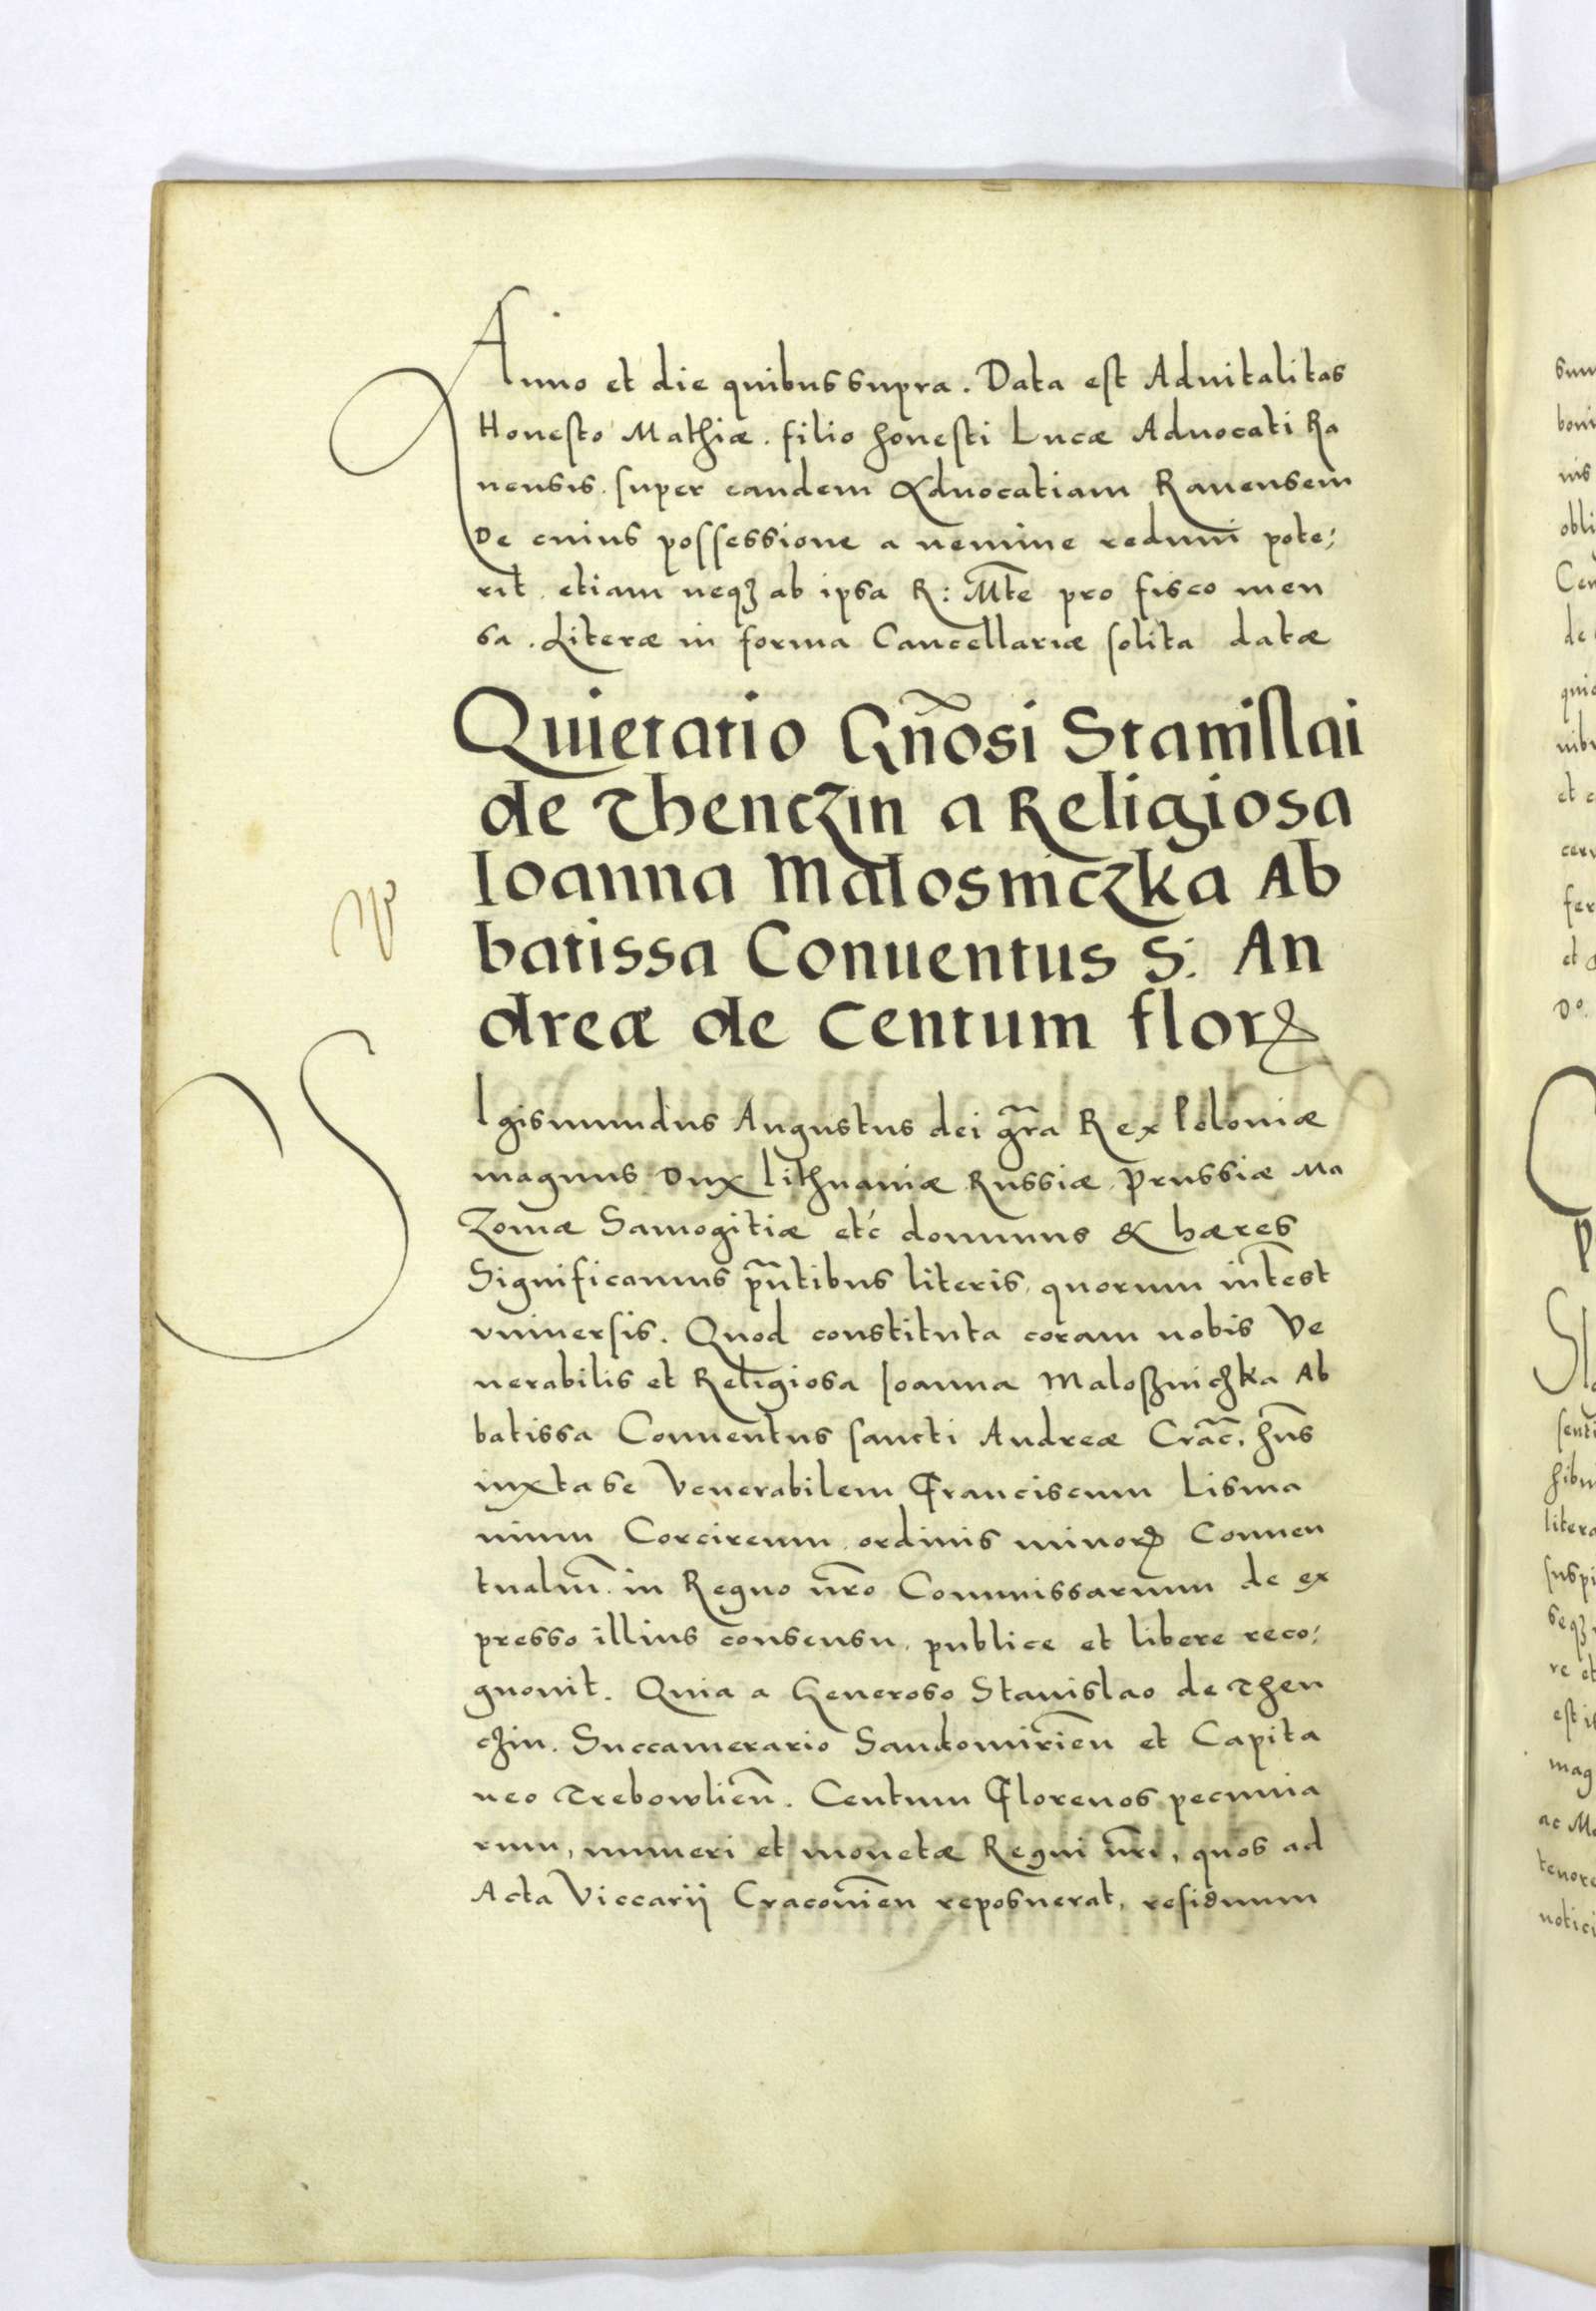 Anno et die quibus supra. Data est Aduitalitas
Honesto Mathiæ. filio honesti Lucæ Aduocati Ra
uensis. super eandem Aduocatiam Rauensem
De cuius possessione a nemine redimi pote;
rit. etiam neqꝫ ab ipsa R: Mt̃e pro fisco men
sa. Literæ in forma Cancellariæ solita datæ
Quietatio Gñosi Stanislai
de Thenczin a Religiosa
Ioanna Malosniczka Ab
batissa Conuentus S: An
dreæ de Centum florꝝ
SIgismundus Augustus dei gr̃a Rex Poloniæ
magnus Dux Lithuaniæ Russiæ. Prussiæ Ma
zouiæ Samogitiæ etc̃ dominus & hæres
Significamus pñtibus literis, quorum int̃est
vniuersis. Quod constituta coram nobis Ve
nerabilis et Religiosa Ioanna Maloszniczka Ab
batissa Conuentus sancti Andreæ Crac̃. hñs
iuxta se Venerabilem Franciscum Lisma
ninum Corcireum. ordinis minorꝝ Conuen
tualiũ. in Regno ñro Commissarium de ex
presso illius consensu, publice et libere reco;
gnouit. Quia a Generoso Stanislao de Then
czin. Succamerario Sandomirieñ et Capita
neo Trebowlieñ. Centum Florenos pecunia
rum, numeri et monetæ Regni ñri, quos ad
Acta Viccarij Cracouieñ reposuerat, residuum